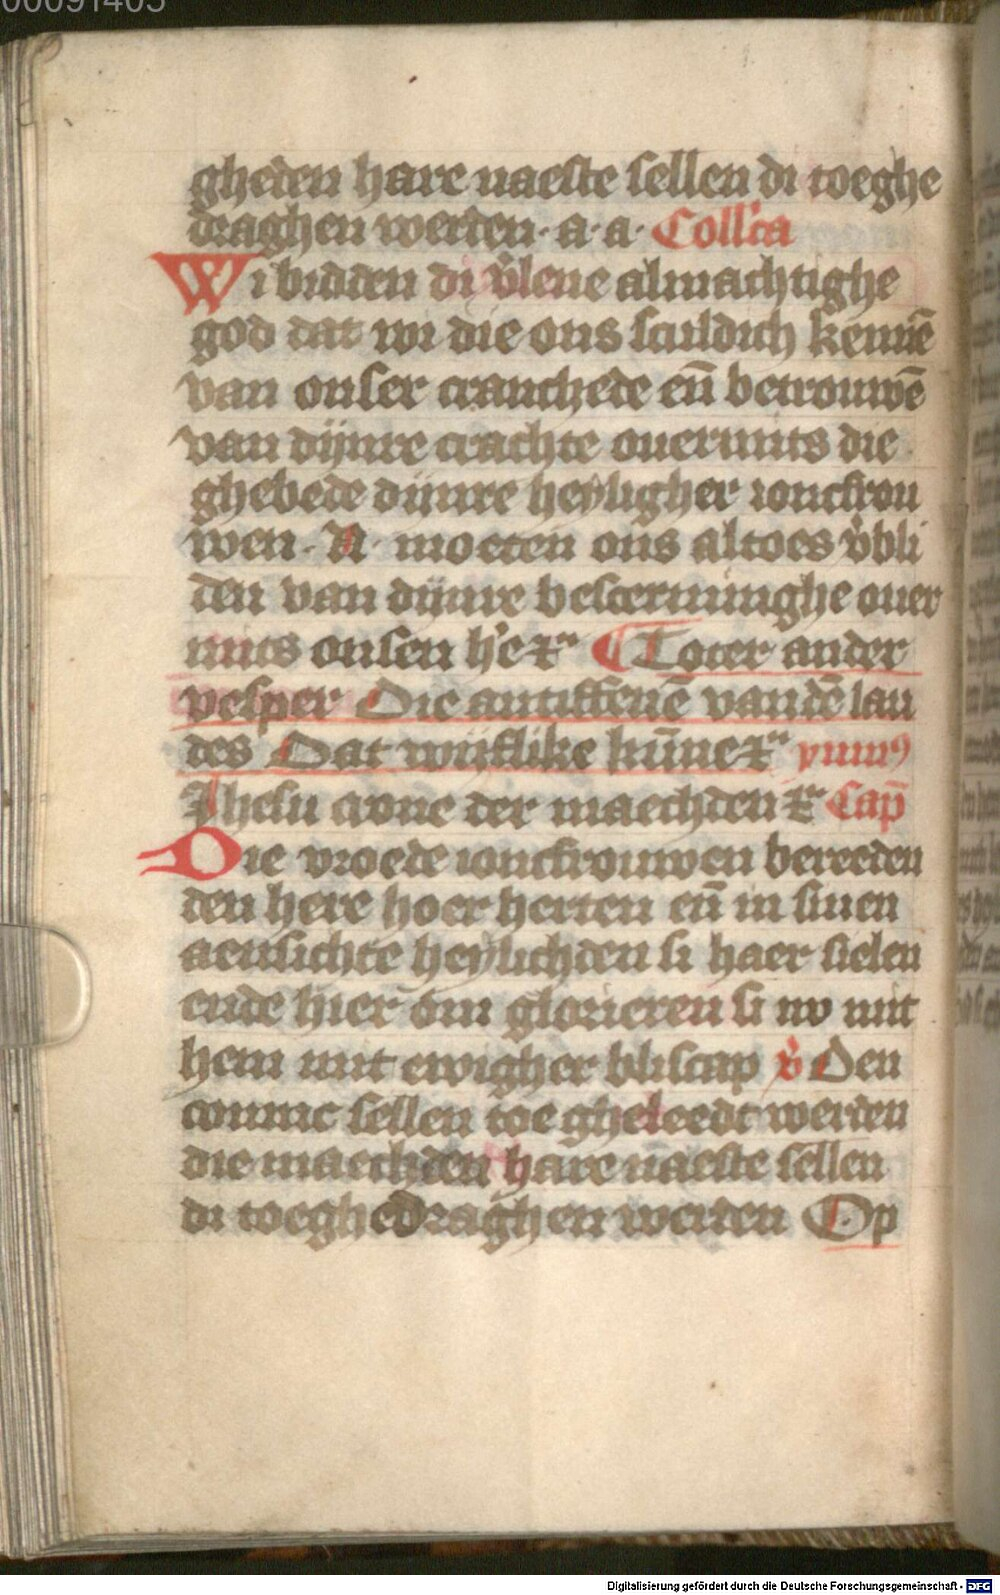 00091405
gheden hare naeste sellen di toeghe
draghen werden · a · a · Coll'ta
Wi bidden di v̓lene almachtighe
god dat wi die ons sculdich kennē
van onser cranchede en̄ betrouwē
van dijnre crachte ouermits die
ghebede dijnre heyligher ioncfrou
wen · N · moeten ons altoes v̓bli
den van dijnre bescerminghe ouer
mits onsen h'e ⁊c̄ Toter ander
vesper Die antiffenē vandē lau
des Dat wijflike kūne ⁊c̄ ymnꝰ
Ihesu crone der maechden ⁊c̄ Cap̄
Die vroede ioncfrouwen bereeden
den here hoer herten en̄ in sinen
aensichte heylichden si haer sielen
ende hier om glorieren si nv mit
hem mit ewigher bliscap v̓ Den
coninc sellen toe gheleedt werden
die maechden hare naeste sellen
di toeghedraghen werden Op
Digitalisierung gefördert durch die Deutsche Forschungsgemeinschaft - DFG